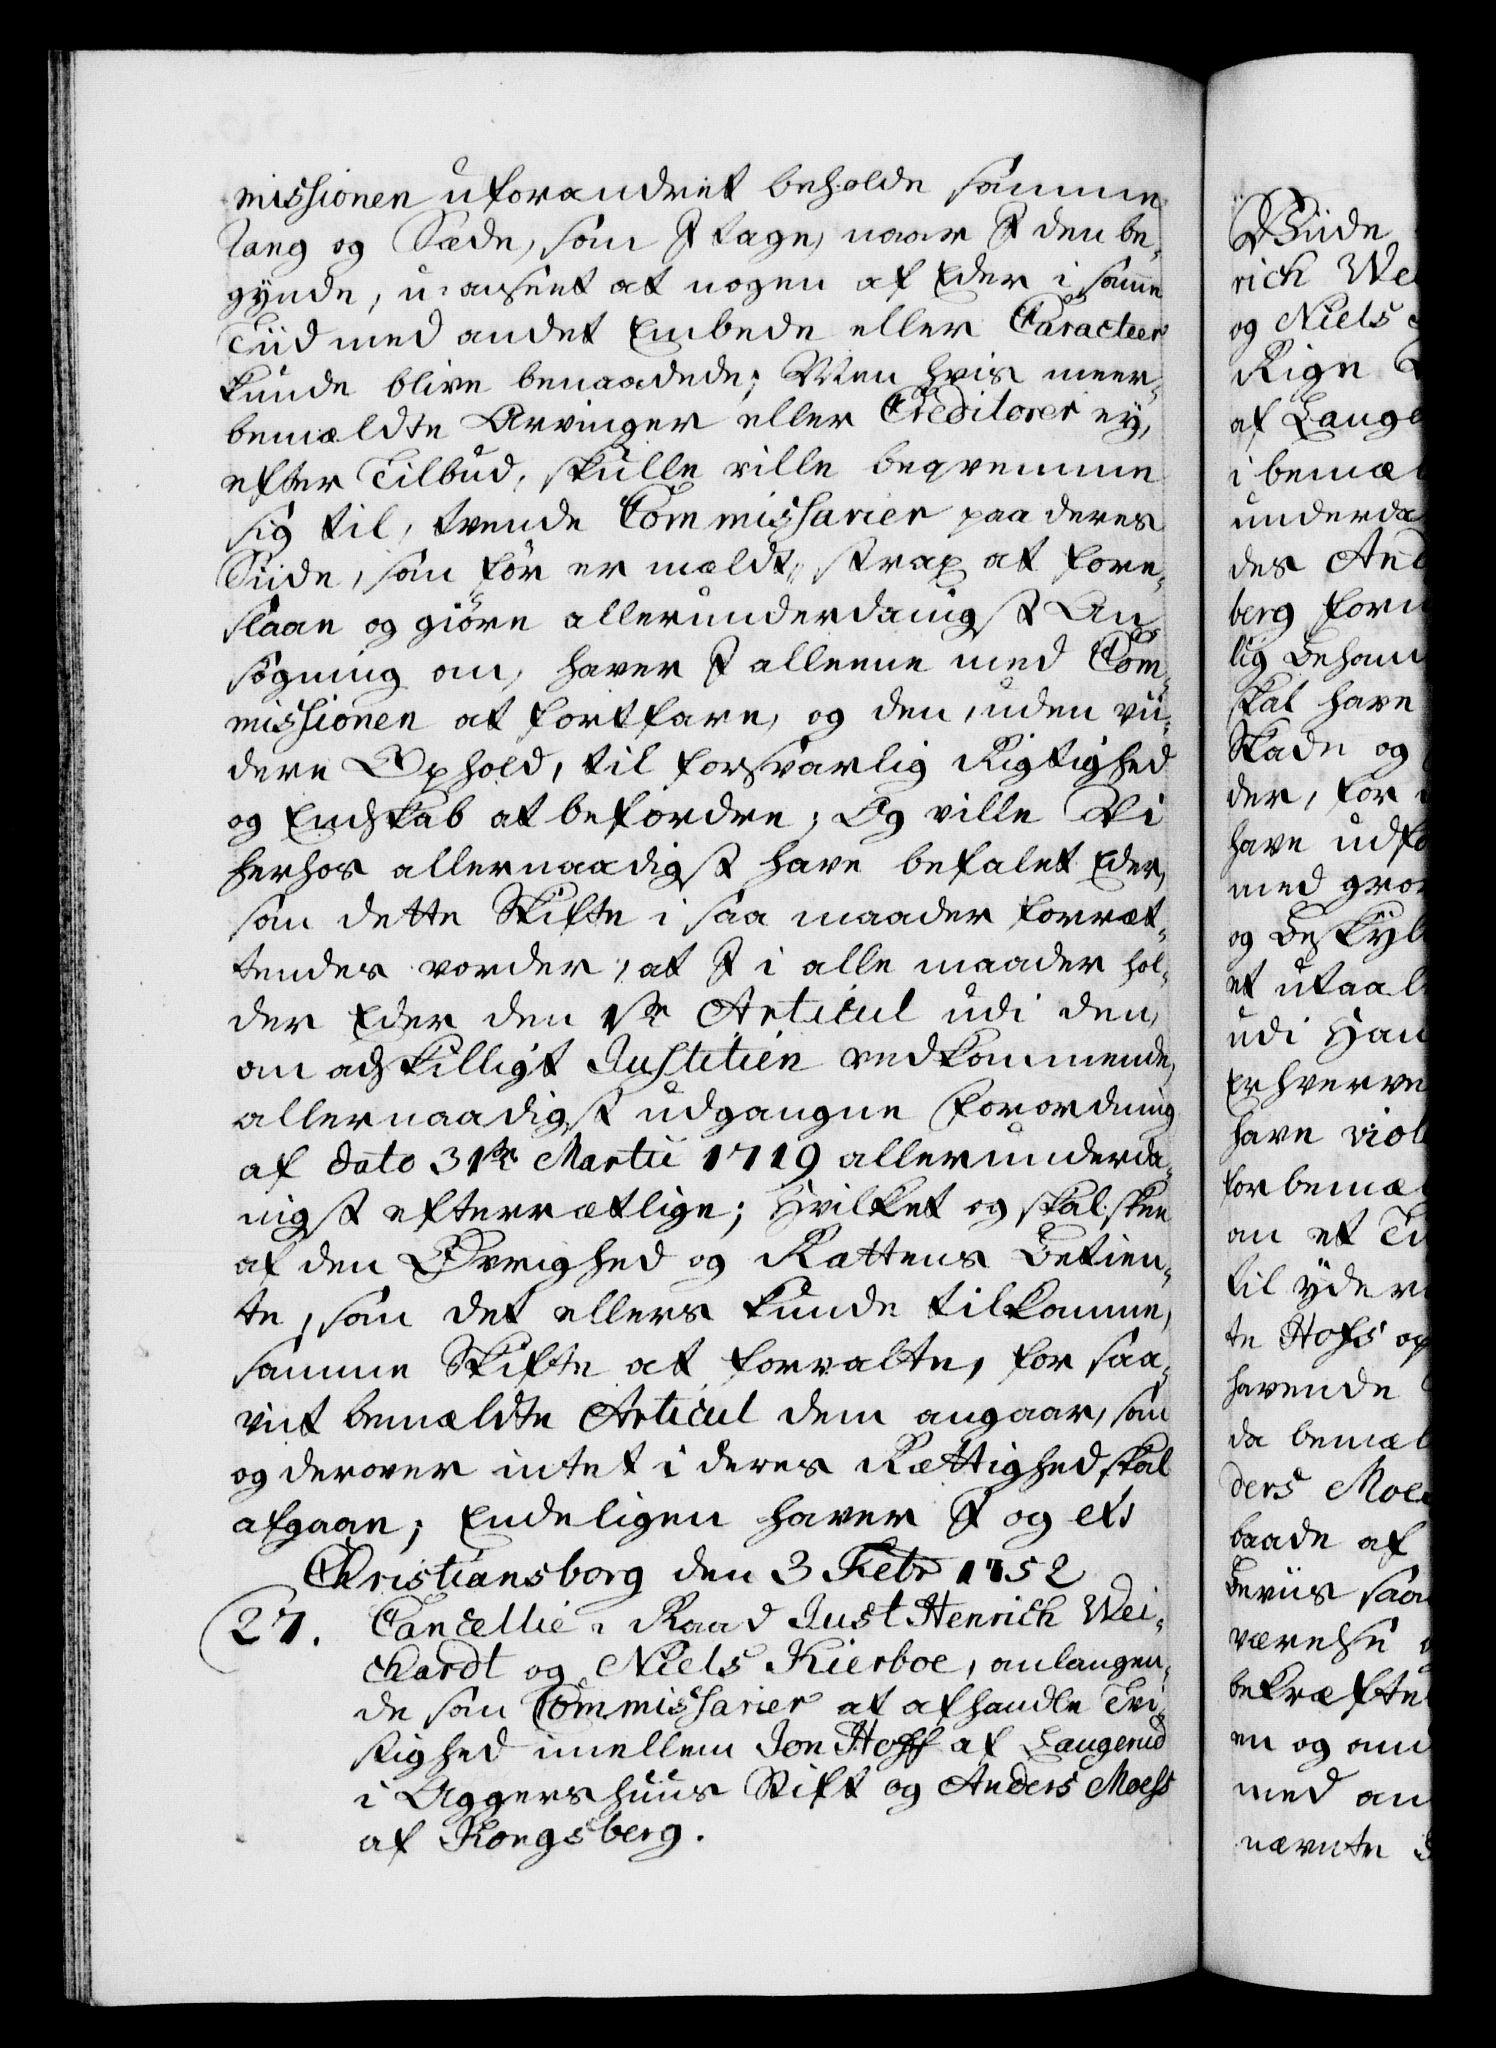 missionen uforandret beholde samme
Rang og Sæde, som I tage, naar I den be-
gynde, u-anseet at nogen af Eder i samme
Tiid med andet Embede eller Caracteer
kunde blive benaadede; Men hvis meer-
bemældte Arvinger eller Creditorer ey,
efter Tilbud, skulle ville beqvemme
sig til, tvende Commissarier paa deres
Siide, som før er mældt, strax at fore-
slaae og giøre allerunderdanigst An
søgning om, haver I alleene med Com-
missionen at fortfare, og den, uden vii-
dere Ophold, til forsvarlig Rigtighed
og Endskab at befordre; Og ville Vi
herhos allernaadigst have befalet Eder,
som dette Skifte i saa maader forræt-
tendes vorder, at I i alle maader hol-
der Eder den 1ste Articul udi den,
om adskilligt Justitien vedkommende,
allernaadigst udgangne Forordning
af dato 31te Martii 1719 allerunderda-
nigst efterrætlige; Hvilket og skal skee
af den Øvrighed og Rættens Betien-
te, som det ellers kunde tilkomme,
samme Skifte at forvalte, for saa-
vit bemældte Articul dem angaar, som
og derover intet i deres Rættighed skal
afgaae; Endeligen haver I og etc
Christiansborg den 3 Febr 1752
27. Cancellie-Raad Just Henrich Wei-
chardt og Niels Kierboe, anlangen-
de som Commissarier at afhandle Tvi-
stighed imellem Jon Hoff af Laugerud
i Aggershuus Stift og Anders Moess
af Kongsberg.
Giide
rich We
og Niels
Rige
af Lauge
i bemæl
underda
des And
berg for
lig Beham
skal have
Skade og
der, for
have udfo
med gro
og Beskyl
et utaal
udi Han
Erhverve
have viol
for bemæ
om et Ti
til yder
te Hofs op
havende
da bemæl
ders Moe
baade af
Beviis saa
værelse
bekræfte
en og an
med an
nævnte